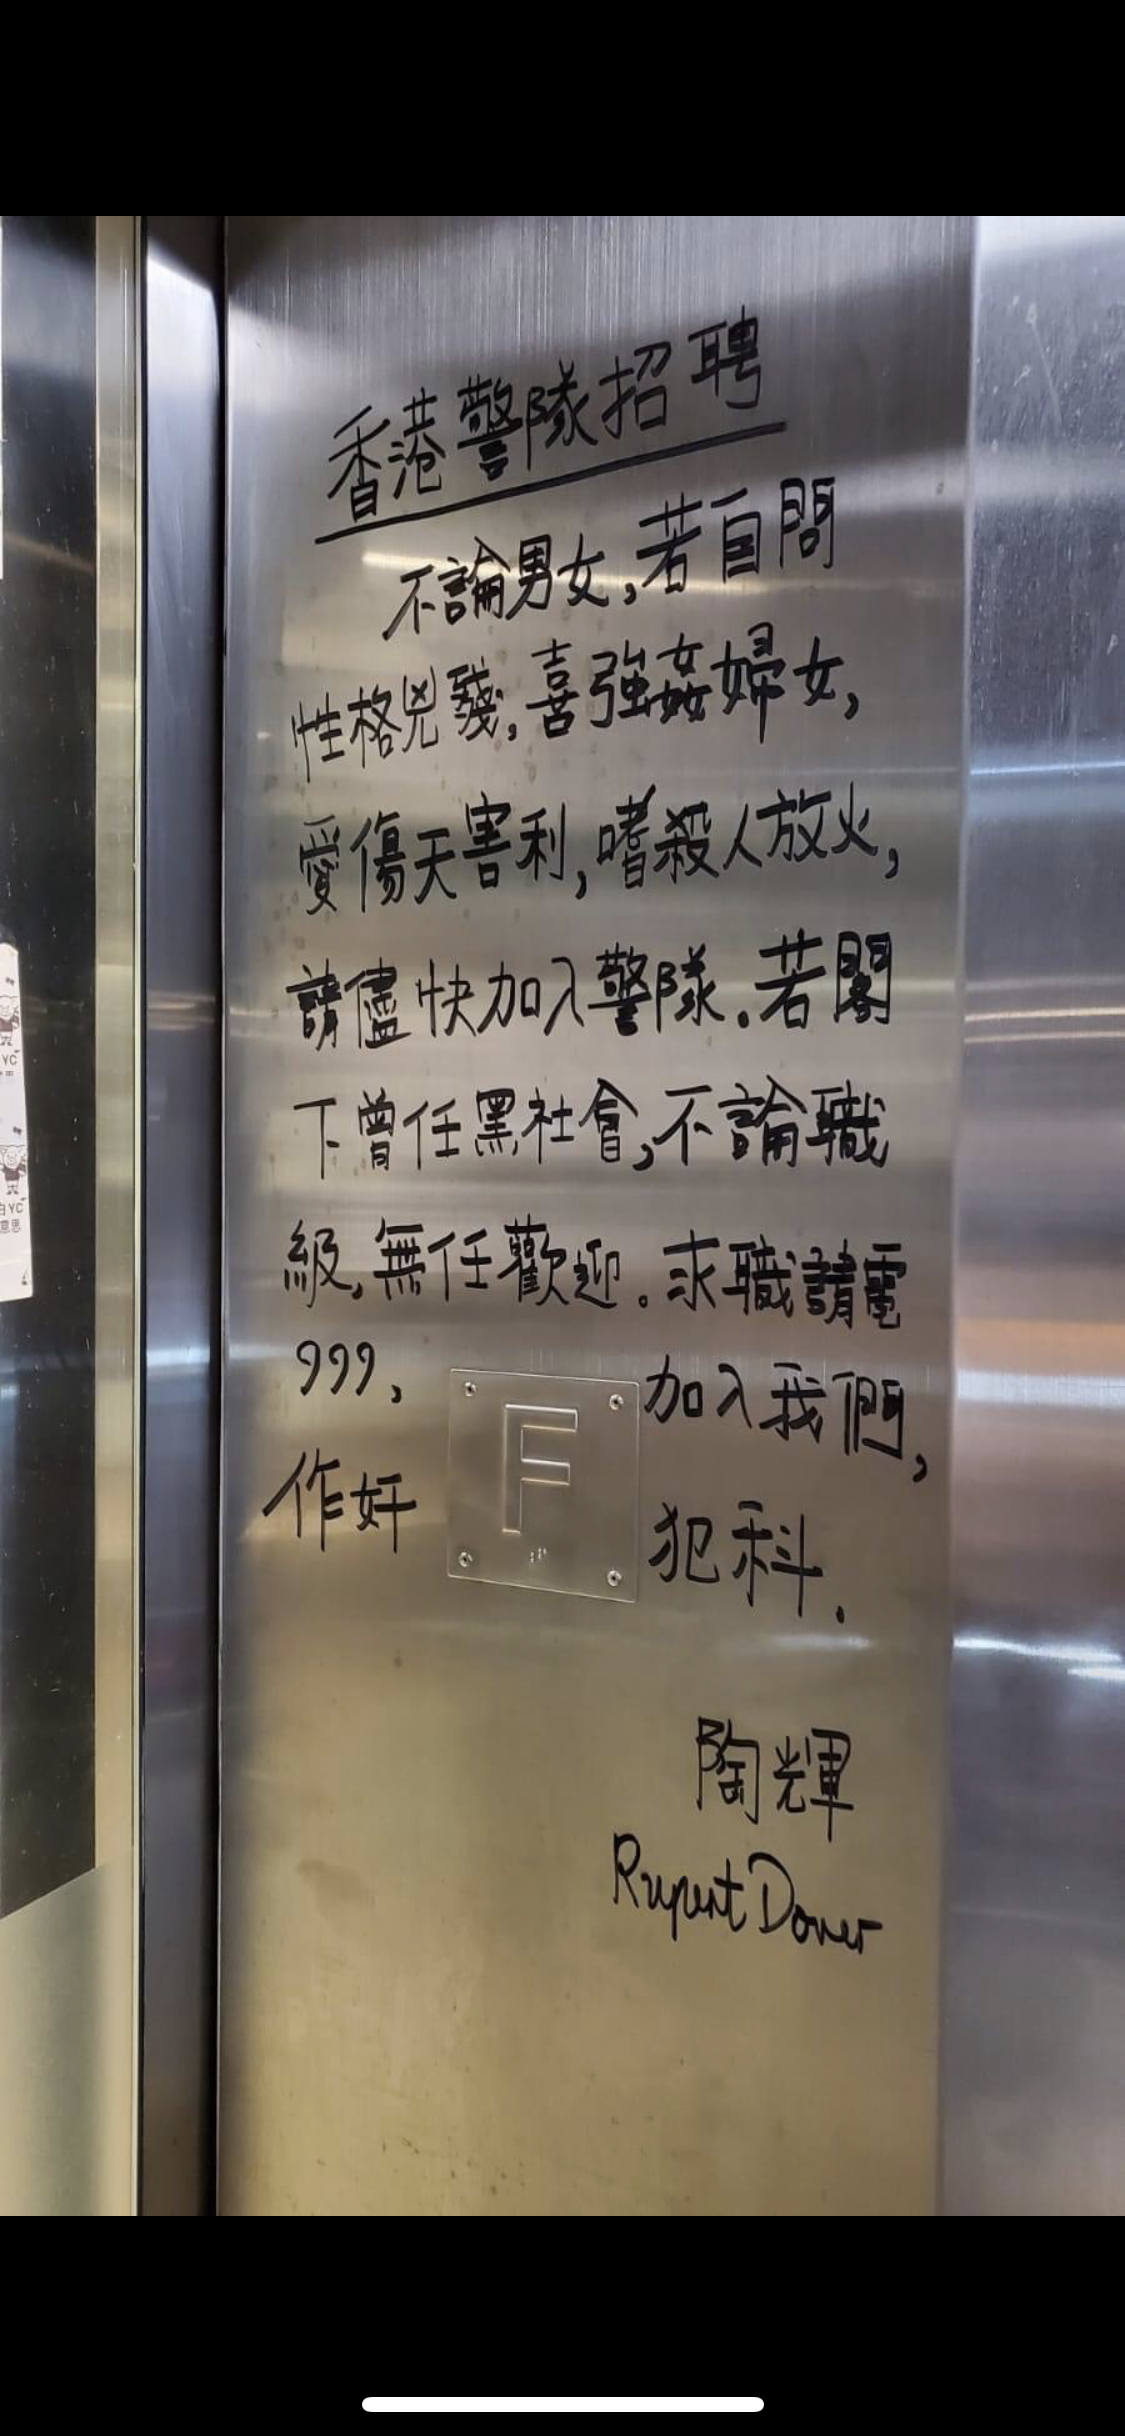 香港警隊招聘
不論男女,若自問
性格兇殘,喜強姦婦女,
愛傷天害利,嗜殺人放火,
請儘快加入警隊.若閣
下曾任黑社會,不論職
級,無任歡迎.求職請電
999, 加入我們,
F
作奸 犯科.
陶輝
Rupert Dover
YC
白YC
意思